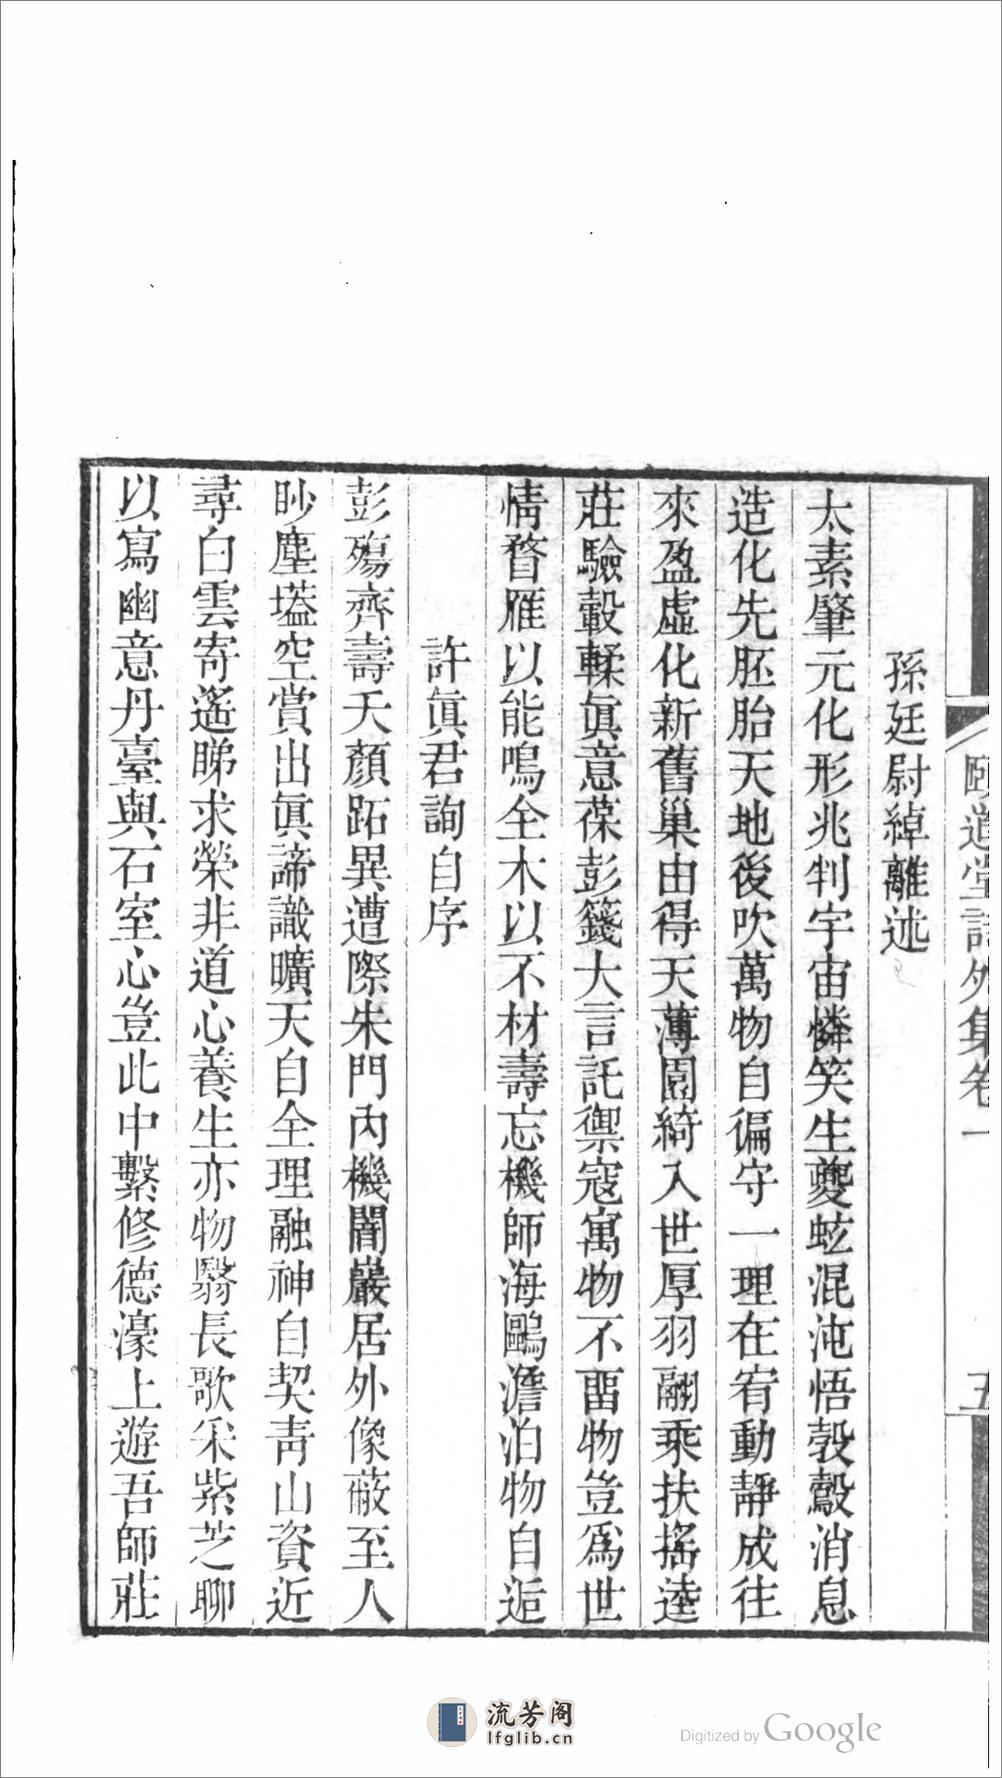 頤道堂詩外集卷一
五
孫廷尉綽離述
太素肇元化形兆判宇宙憐笑生夔蚿混沌悟鷇鷇消息
造化先胚胎天地後吹萬物自徧守一理在宥動靜成往
來盈虛化新舊巢由得天薄園綺入世厚羽翮乘扶搖逵
莊驗轂輮眞意葆彭籛大言託禦寇寓物不畱物豈爲世
情瞀雁以能鳴全木以不材壽忘機師海鷗澹泊物自逅
許眞君詢自序
彭殤齊壽夭顏跖異遭際朱門內機闇巖居外像蔽至人
眇塵壒空賞出眞諦識曠天自全理融神自契靑山資近
尋白雲寄遙睇求榮非道心養生亦物翳長歌采紫芝聊
以寫幽意丹臺與石室心豈此中繫修德濠上遊吾師莊
流芳阁
lfglib.cn
Digitized by Google